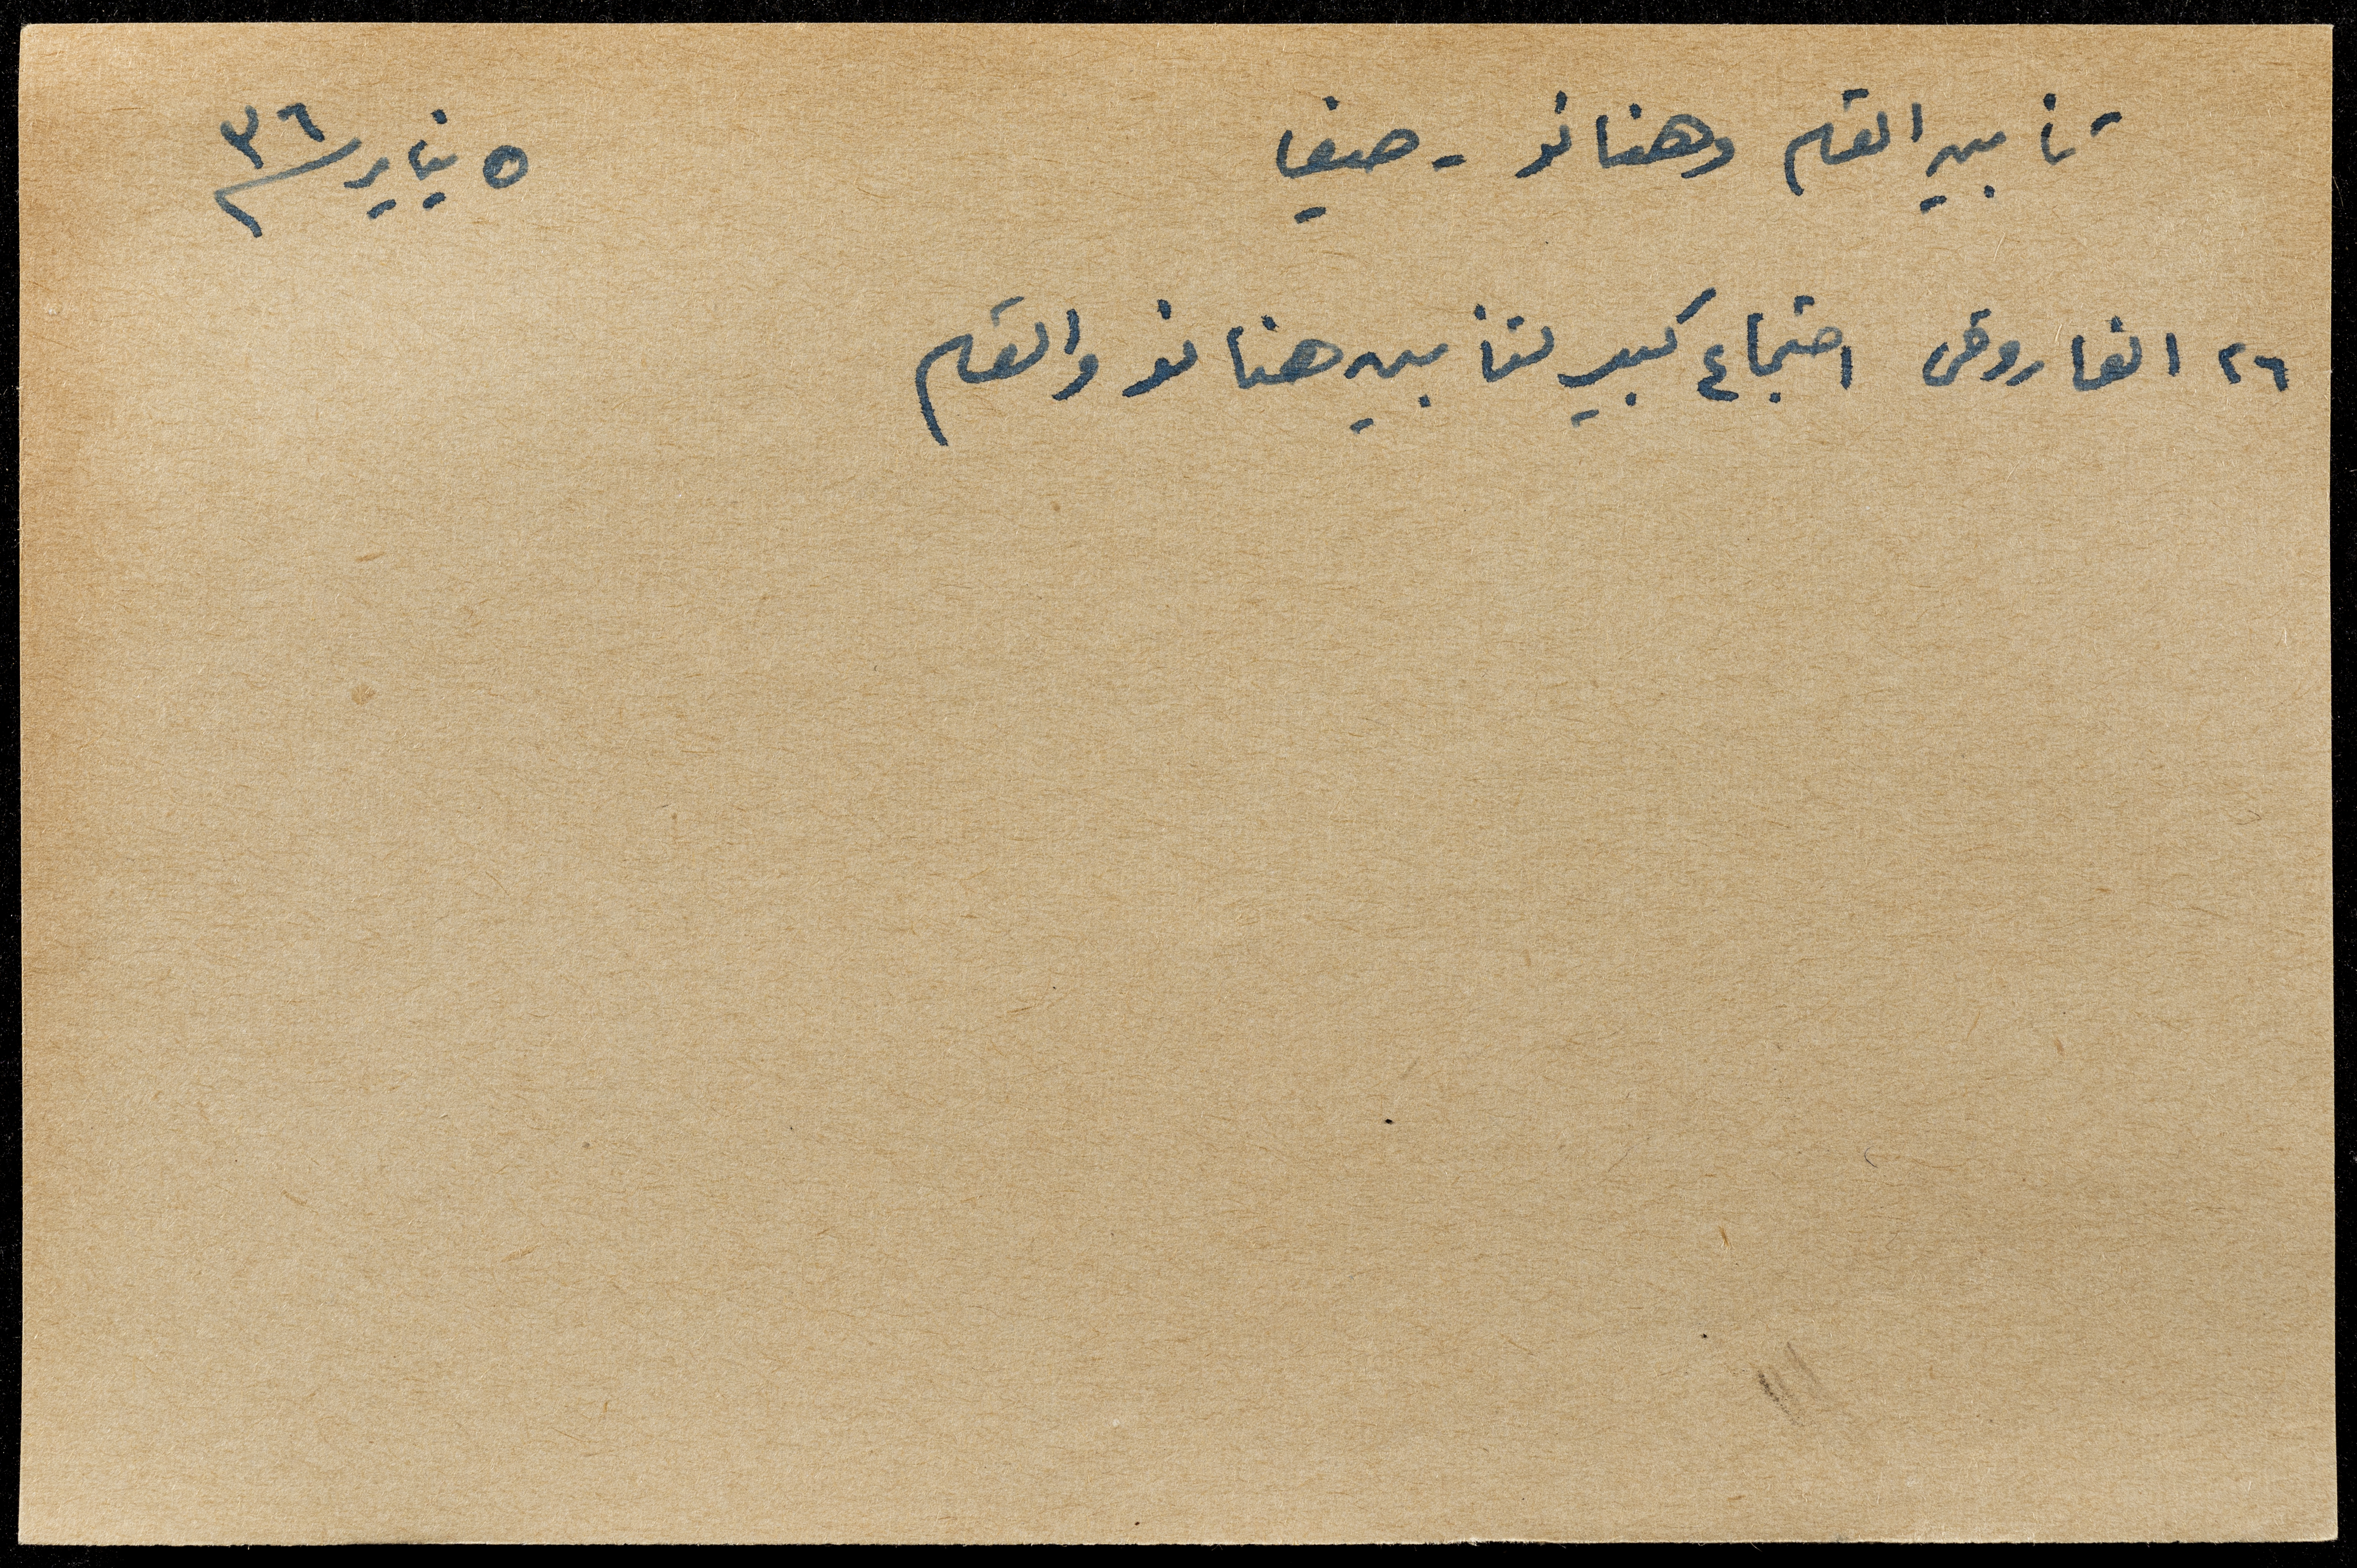 تأبين القسام وهنانو - حيفا ٥ يناير ٣٦
٢٦ الفاروقي اجتماع كبير لتأبين هنانو والقسام